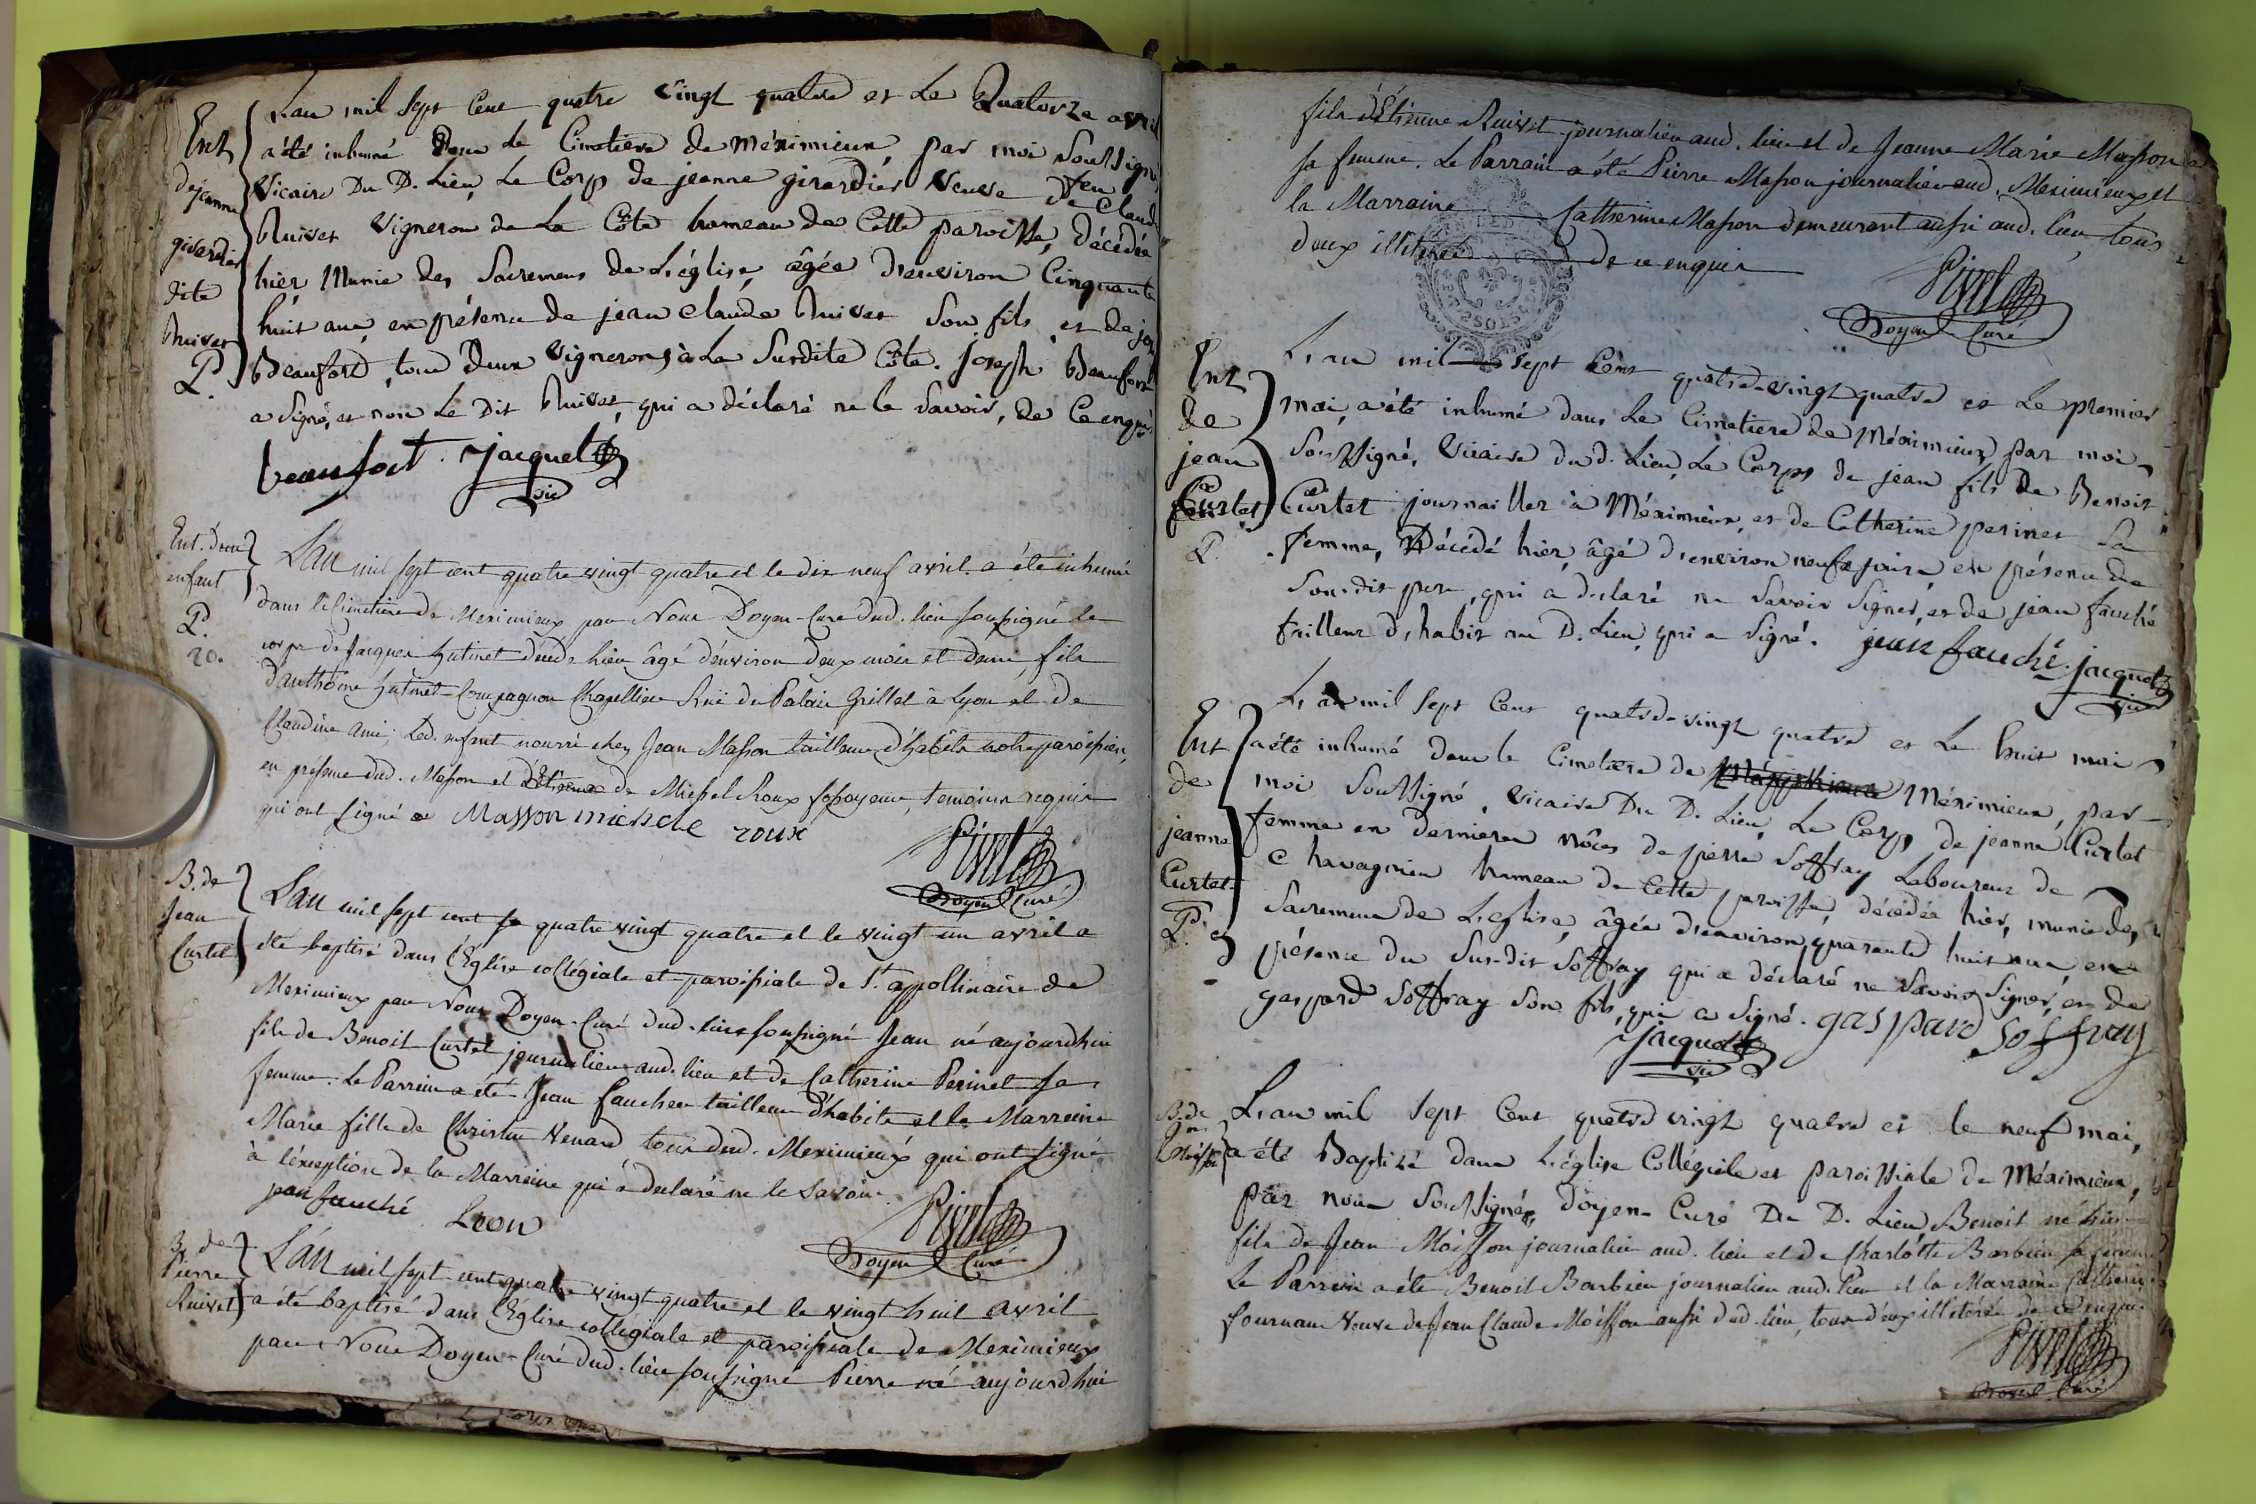 L'an mil sept Cent quatre vingt quatre et Le Quatorze avril
Ent de jeanne girardier dite Ruivet P.
a été inhumé Dans Le Cimetiere de méximieux par moi Soussigné
Vicaire Du D. Lieu Le Corp de jeanne girardier veuve De feu Claude
Ruivet vigneron de La Côte hameau de Cette paroisse, décédée
hier Munie des Sacremens de L'église, âgée d'environ Cinquante
huit ans, en présence de jean Claude Ruivet Son fils et de jos
Beaufort, tous Deux vignerons à La Surdite Côte. joseph Beaufort
a signé, et non Le Dit Ruivet, qui a déclaré ne le Savoir, de Ce enquis
beaufort. jacquet
vic
Ent. d'un enfant P. 20.
L'an mil sept cent quatre vingt quatre et le dix neuf avril a été inhumé
dans le Cimetiere de Meximieux par Nous Doyen-Curé dud. lieu soussigné le
corps de Jacques hutinet décédé hier âgé d'environ deux mois et demi, fils
d'anthôme hutinet Compagnon Chapellier Rue du Palais Grillet à Lyon et de
Claudine ami; Led. enfant nourri chez Jean Masson tailleur d'habits notre paroissien,
en présence dud. Masson et de Michel Roux fossoyeur, temoins requis
qui ont signé Masson michele roux
Pivet
Doyen Curé
B. de Jean Curtet
L'an mil sept cent quatre vingt quatre et le vingt un avril a
été baptisé dans l'Eglise collégiale et paroissiale de St. appollinaire de
Meximieux par Nous Doyen-Curé dud. lieu soussigné Jean né aujourdhui
fils de Benoit Curtet journalier aud. lieu et de Catherine Perinet sa
femme. Le Parrain a été Jean fauchée tailleur d'habits et la Marraine
Marie fille de Christin Venard tous dud. Meximieux qui ont signé
à l'exception de la Marraine qui a declaré ne le savoir.
jean fauché Leon
Pivet
Doyen Curé
B. de Pierre Ruivet
L'an mil sept cent quatre vingt quatre et le vingt huit avril
a été baptisé dans l'Eglise collegiale et paroissiale de Meximieux
par Nous Doyen-Curé dud. lieu soussigné Pierre né aujourd'hui
fils d'Étienne Ruivet journalier aud. lieu et de Jeanne Marie Masson
sa femme. Le Parrain a été Pierre Masson journalier aud. Meximieux et
la Marraine Catherine Masson demeurant aussi aud. lieu, tous
deux illiterés de ce enquis
Pivet
Doyen Curé
Ent de jean Curtet P.
L'an mil sept Cent quatre-vingt quatre et Le premier
mai, a été inhumé dans Le Cimetiere de Méximieux par moi
Soussigné, vicaire du d. Lieu, Le Corps de jean fils de Benoit
Curtet journaillier à Méximieux, et de Catherine perinet Sa
femme, Décédé hier, âgé d'environ neuf jours, en présence de
Son-dit pere, qui a declaré ne Savoir signer, et de jean fauché
tailleur d'habit au D. Lieu, qui a signé. jean fauché. jacquet
vic
Ent de jeanne Curtet P.
L'an mil Sept Cent quatre-vingt quatre et Le huit mai
a été inhumé dans le Cimetiere de Méximieux, par
moi Soussigné, vicaire Du D. Lieu, Le Corp de jeanne Curtet
femme en dernieres nôces de pierre Soffray Laboureur de
Chavagnieu hameau de Cette paroisse, décédée hier, munie des
Sacremens de L'église, âgée d'environ quarante huit ans, en
présence du Sus-dit Soffray qui a déclaré ne Savoir signer, et de
gaspard Soffray son fils, qui a signé. gaspard Soffray
jacquet
vic
B. de
L'an mil sept Cent quatre vingt quatre et le neuf mai,
a été Baptizé dans L'église Collégiale et paroissiale de Méximieux,
par nous Soussigné, doyen-Curé Du D. Lieu Benoit né hier
fils de Jean Moisson journalier aud. lieu et de Charlotte Barbier sa femme
Le Parrain a été Benoit Barbier journalier aud. lieu et la Marraine Catherine
fournaux Veuve de Jean Claude Moisson aussi dud. lieu, tous deux illiterés de ce enquis.
Pivet
Doyen Curé